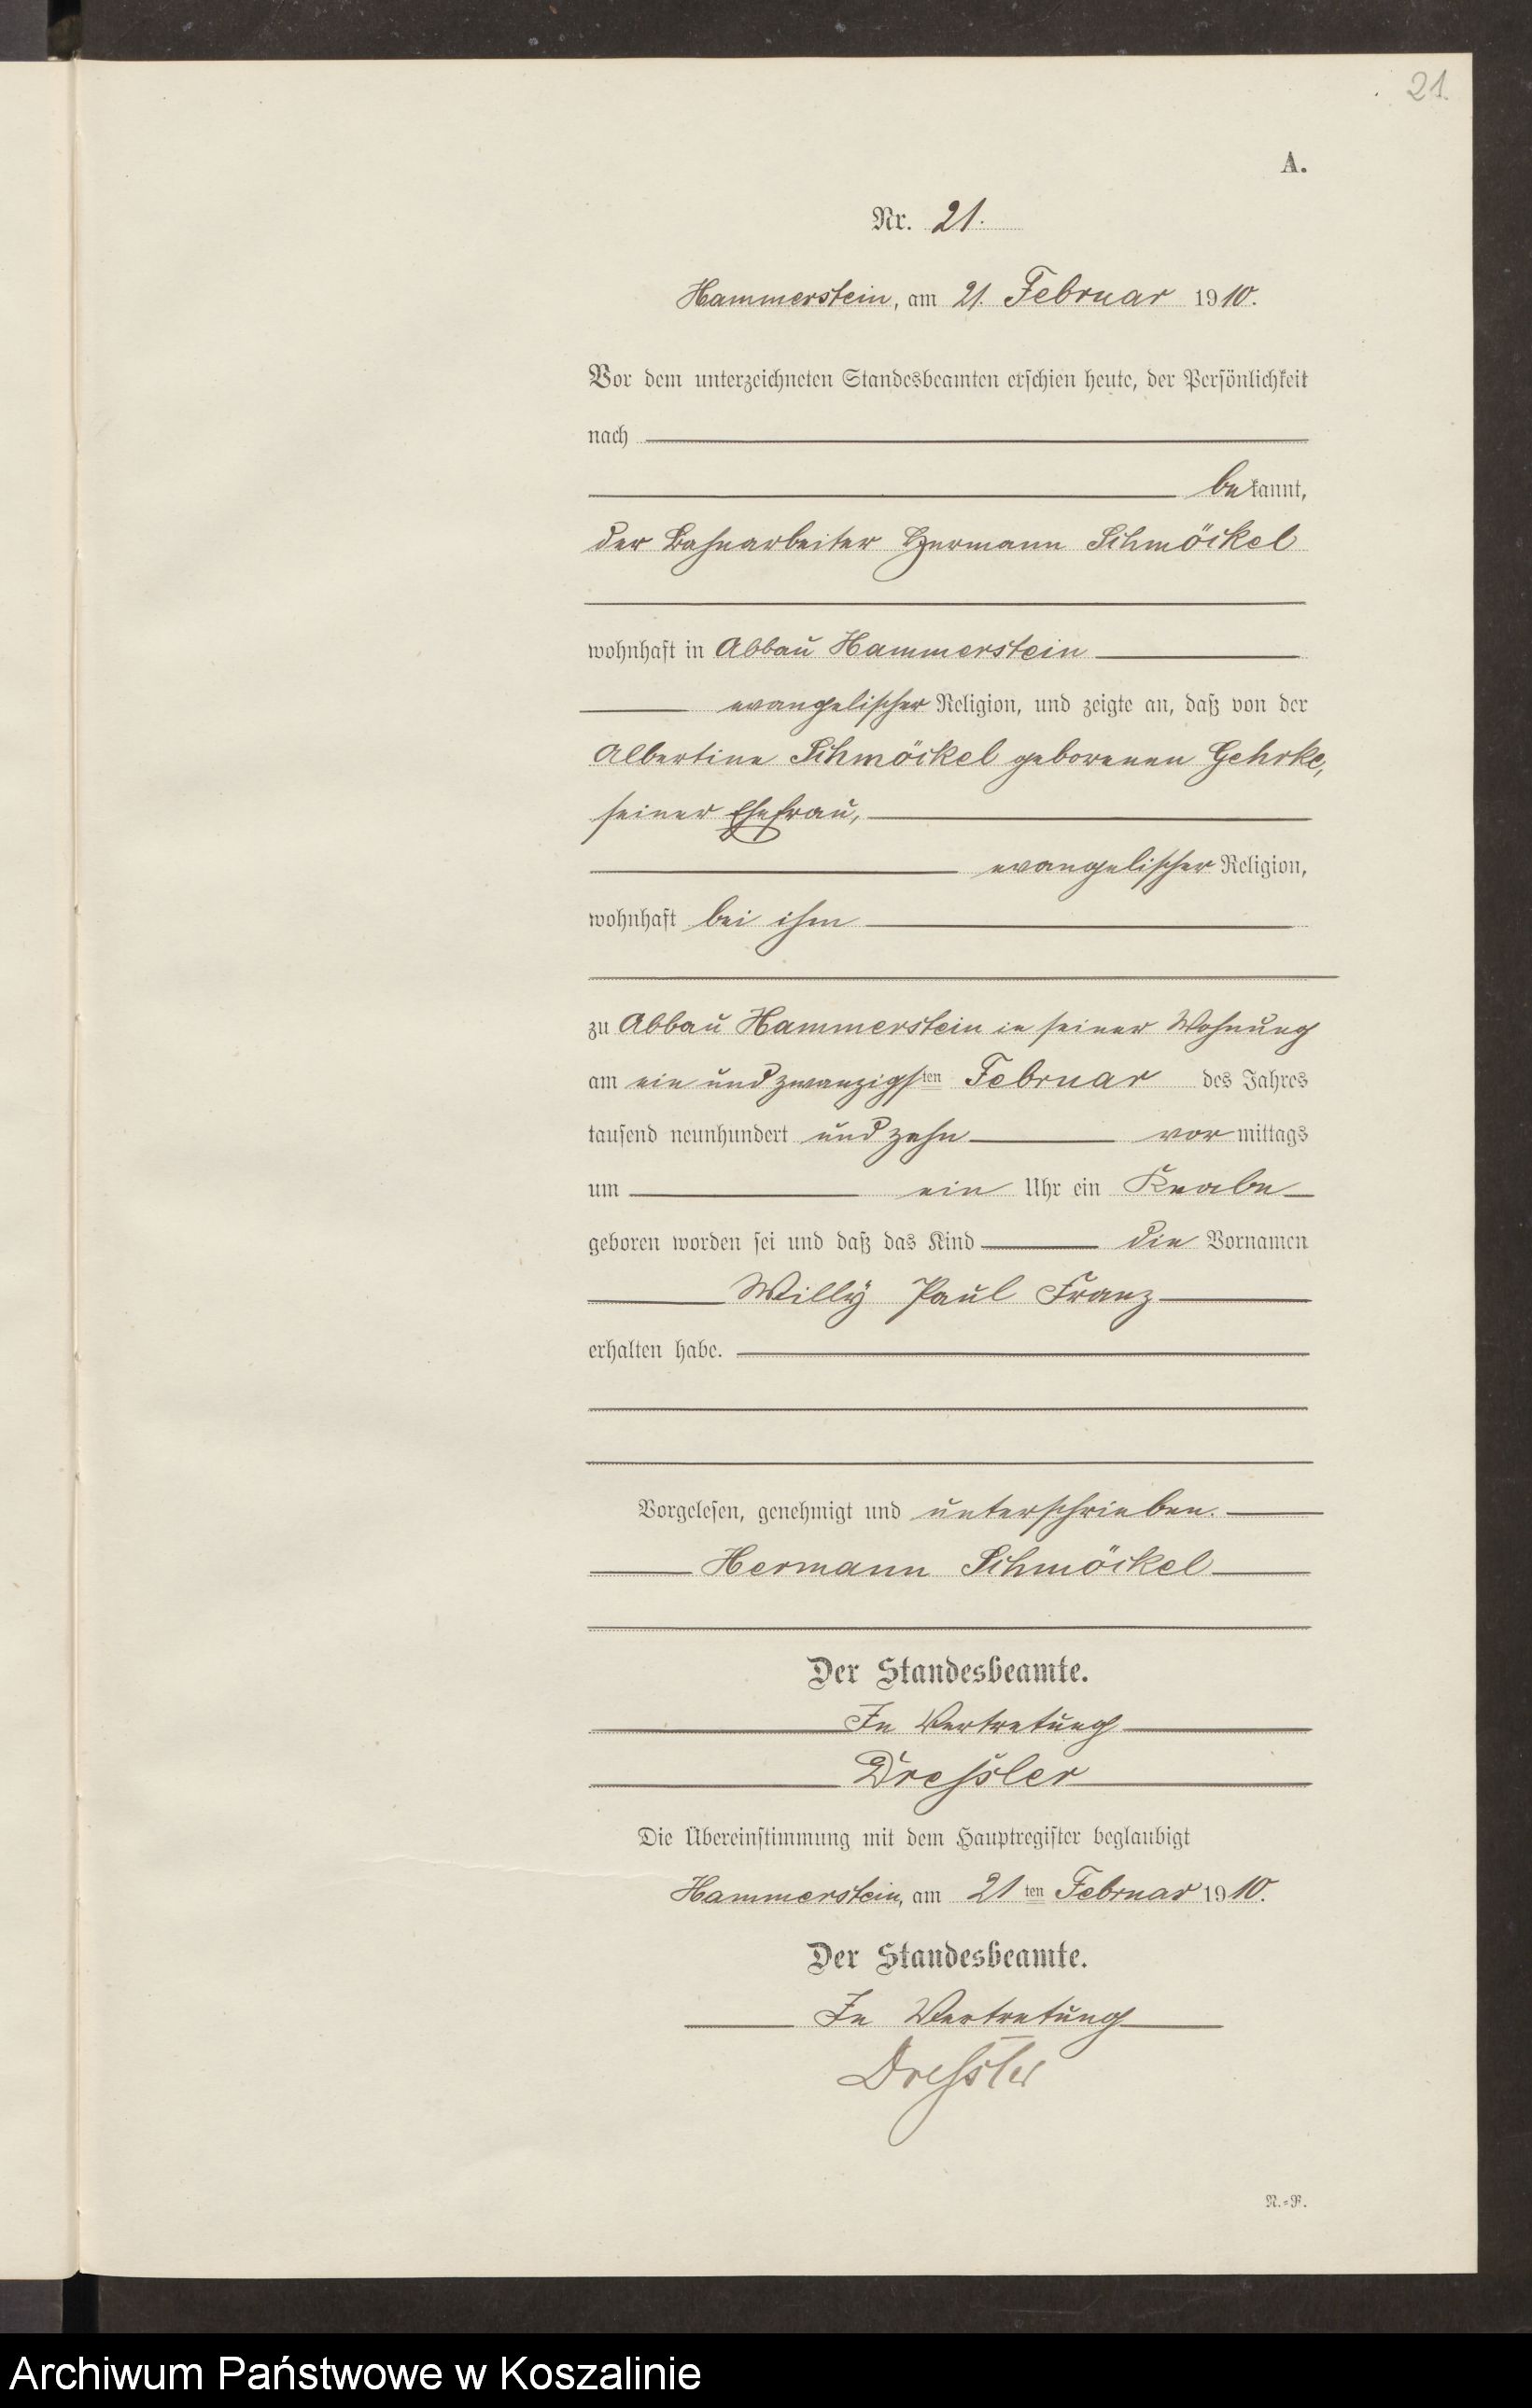 21.
A.
Nr. 21.
Hammerstein, am 21. Februar 1910.
Vor dem unterzeichneten Standesbeamten erschien heute, der Persönlichkeit
nach
bekannt,
der Bahnarbeiter Hermann Schmöckel
wohnhaft in Abbau Hammerstein
evangelischer Religion, und zeigte an, daß von der
Albertine Schmöckel geborenen Gehrke,
seiner Ehefrau,
evangelischer Religion,
wohnhaft bei ihm
zu Abbau Hammerstein in seiner Wohnung
am ein und zwanzigsten Februar des Jahres
tausend neunhundert und zehn vormittags
um ein Uhr ein Knabe
geboren worden sei und daß das Kind die Vornamen
Willy Paul Franz
erhalten habe.
Vorgelesen, genehmigt und unterschrieben.
Hermann Schmöckel
Der Standesbeamte.
In Vertretung
Dressler
Die Übereinstimmung mit dem Hauptregister beglaubigt
Hammerstein, am 21ten Februar 1910.
Der Standesbeamte.
In Vertretung
Dressler
N.=F.
Archiwum Państwowe w Koszalinie